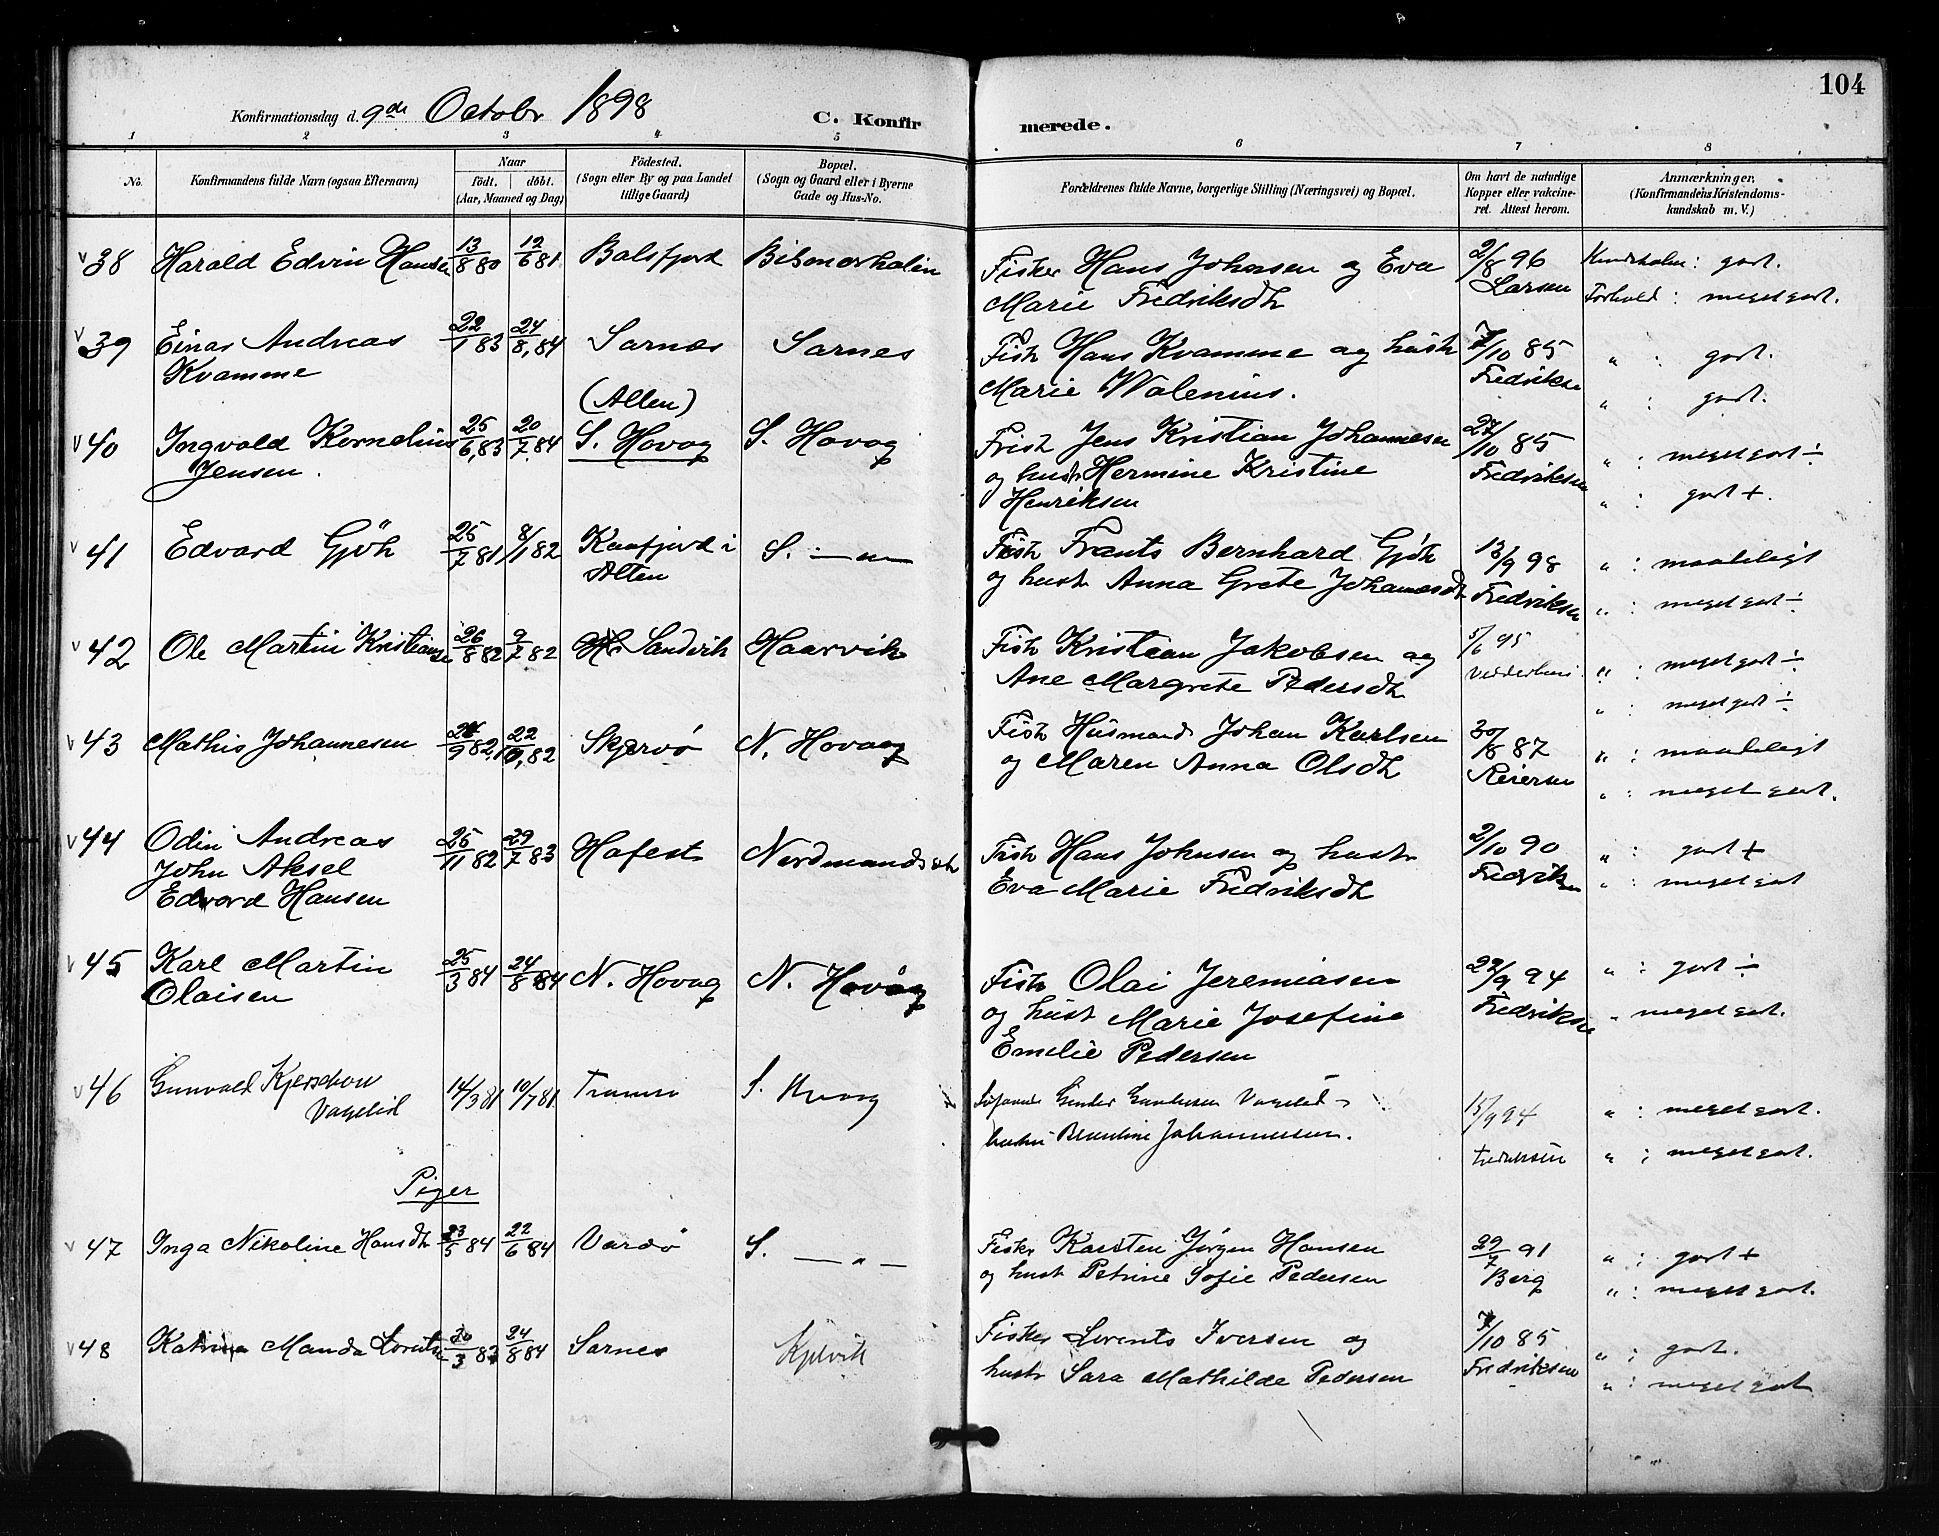 104
Konfirmationsdag d. 9de Octobr 1898
C. Konfirmerede.
1 2 3 4 5 6 7 8
No.
Konfirmandens fulde Navn (ogsaa Efternavn)
Naar
födt. döbt.
(Aar, Maaned og Dag)
Födested.
(Sogn eller By og paa Landet
tillige Gaard)
Bopæl.
(Sogn og Gaard eller i Byerne
Gade og Hus-No.
Forældrenes fulde Navne, borgerlige Stilling (Næringsvei) og Bopæl.
Om havt de naturlige
Kopper eller vakcine-
ret. Attest herom.
Anmærkninger.
(Konfirmandens Kristendoms-
kundskab m. V.)
38 Harald Edvin Hansen 13/8 80 12/6 81 Balsfjord
Fisker Hans Johnsen og Eva
Marie Fredriksdt
2/8 96
Larsen
godt.
Forhold: meget godt.
39 Einar Andreas
Kvamme
22/1 83 24/8, 84 Sarnes Sarnes
Fisk Hans Kvamme og hustr
Marie Walenius.
7/10 85
Fredriksen
" : godt.
" : godt.
40 Ingvald Kornelius
Jensen.
25/6, 83 20/7 84
(Alten)
S. Hovog S. Hovog
Jens Kristian Johannesen
og hustr Hermine Kristine
Henriksen
27/10 85
Fredriksen
" : meget godt ÷
" : godt +.
41 Edvard Gjöh 25/7 81 8/1 82 Kaafjord i
Alten
S. — " —
Fisk Frants Bernhard
og hust Anna Grete Johannesdt
13/9 98
Fredriksen
" : maadeligt
" : meget godt ÷
42 Ole Martin Kristiansen 26/8 82 9/7 82 Sandvik Haarvik
Fisk Kristian Jakobsen og
Ane Margrete Pedersdt
5/6 95
" : meget godt ÷
" : meget godt ÷
43 Mathis Johannesen 82 22 82 Skjervö N. Hovaag
Fisk Husmand Johan Karlsen
og Maren Anna Olsdt
30/8 87
Reiersen
" : maadeligt
" : meget godt.
44 Odin Andreas
John Aksel
Edvard Hansen
25/11 82 29/7 83
Fisk Hans Johnsen og hustr
Eva Marie Fredriksdt
2/10 90
Fredriksen
" : godt +
" : meget godt
45 Karl Martin
Olaisen
25/3 84 24/8 84 N. Hovog N. Hovåg
Fisk Olai Jeremiasen
og hust Marie Josefine
Emelie Pedersen
22/9 94
Fredriksen
" : godt ÷
" meget godt.
46 Gunvald
14/3 81 10/7 81 Tromsö
Johannessen.
15/9 94
" : meget godt.
" : meget godt.
Piger
47 Inga Nikoline Hansdt 23/5 84 22/6 84 Vardö S. — " —
Fisker Karsten Jörgen Hansen
og hust Petrine Sofie Pedersen
29/7 91
Berg
" : godt +
" : meget godt.
48 Katrine Manda Lorents 20/3 83 24/8 84 Sarnes Kjelvik
Fisker Lorents Iversen og
hustr Sara Mathilde Pedersen
7/10 85
Fredriksen
" : godt.
" : meget godt